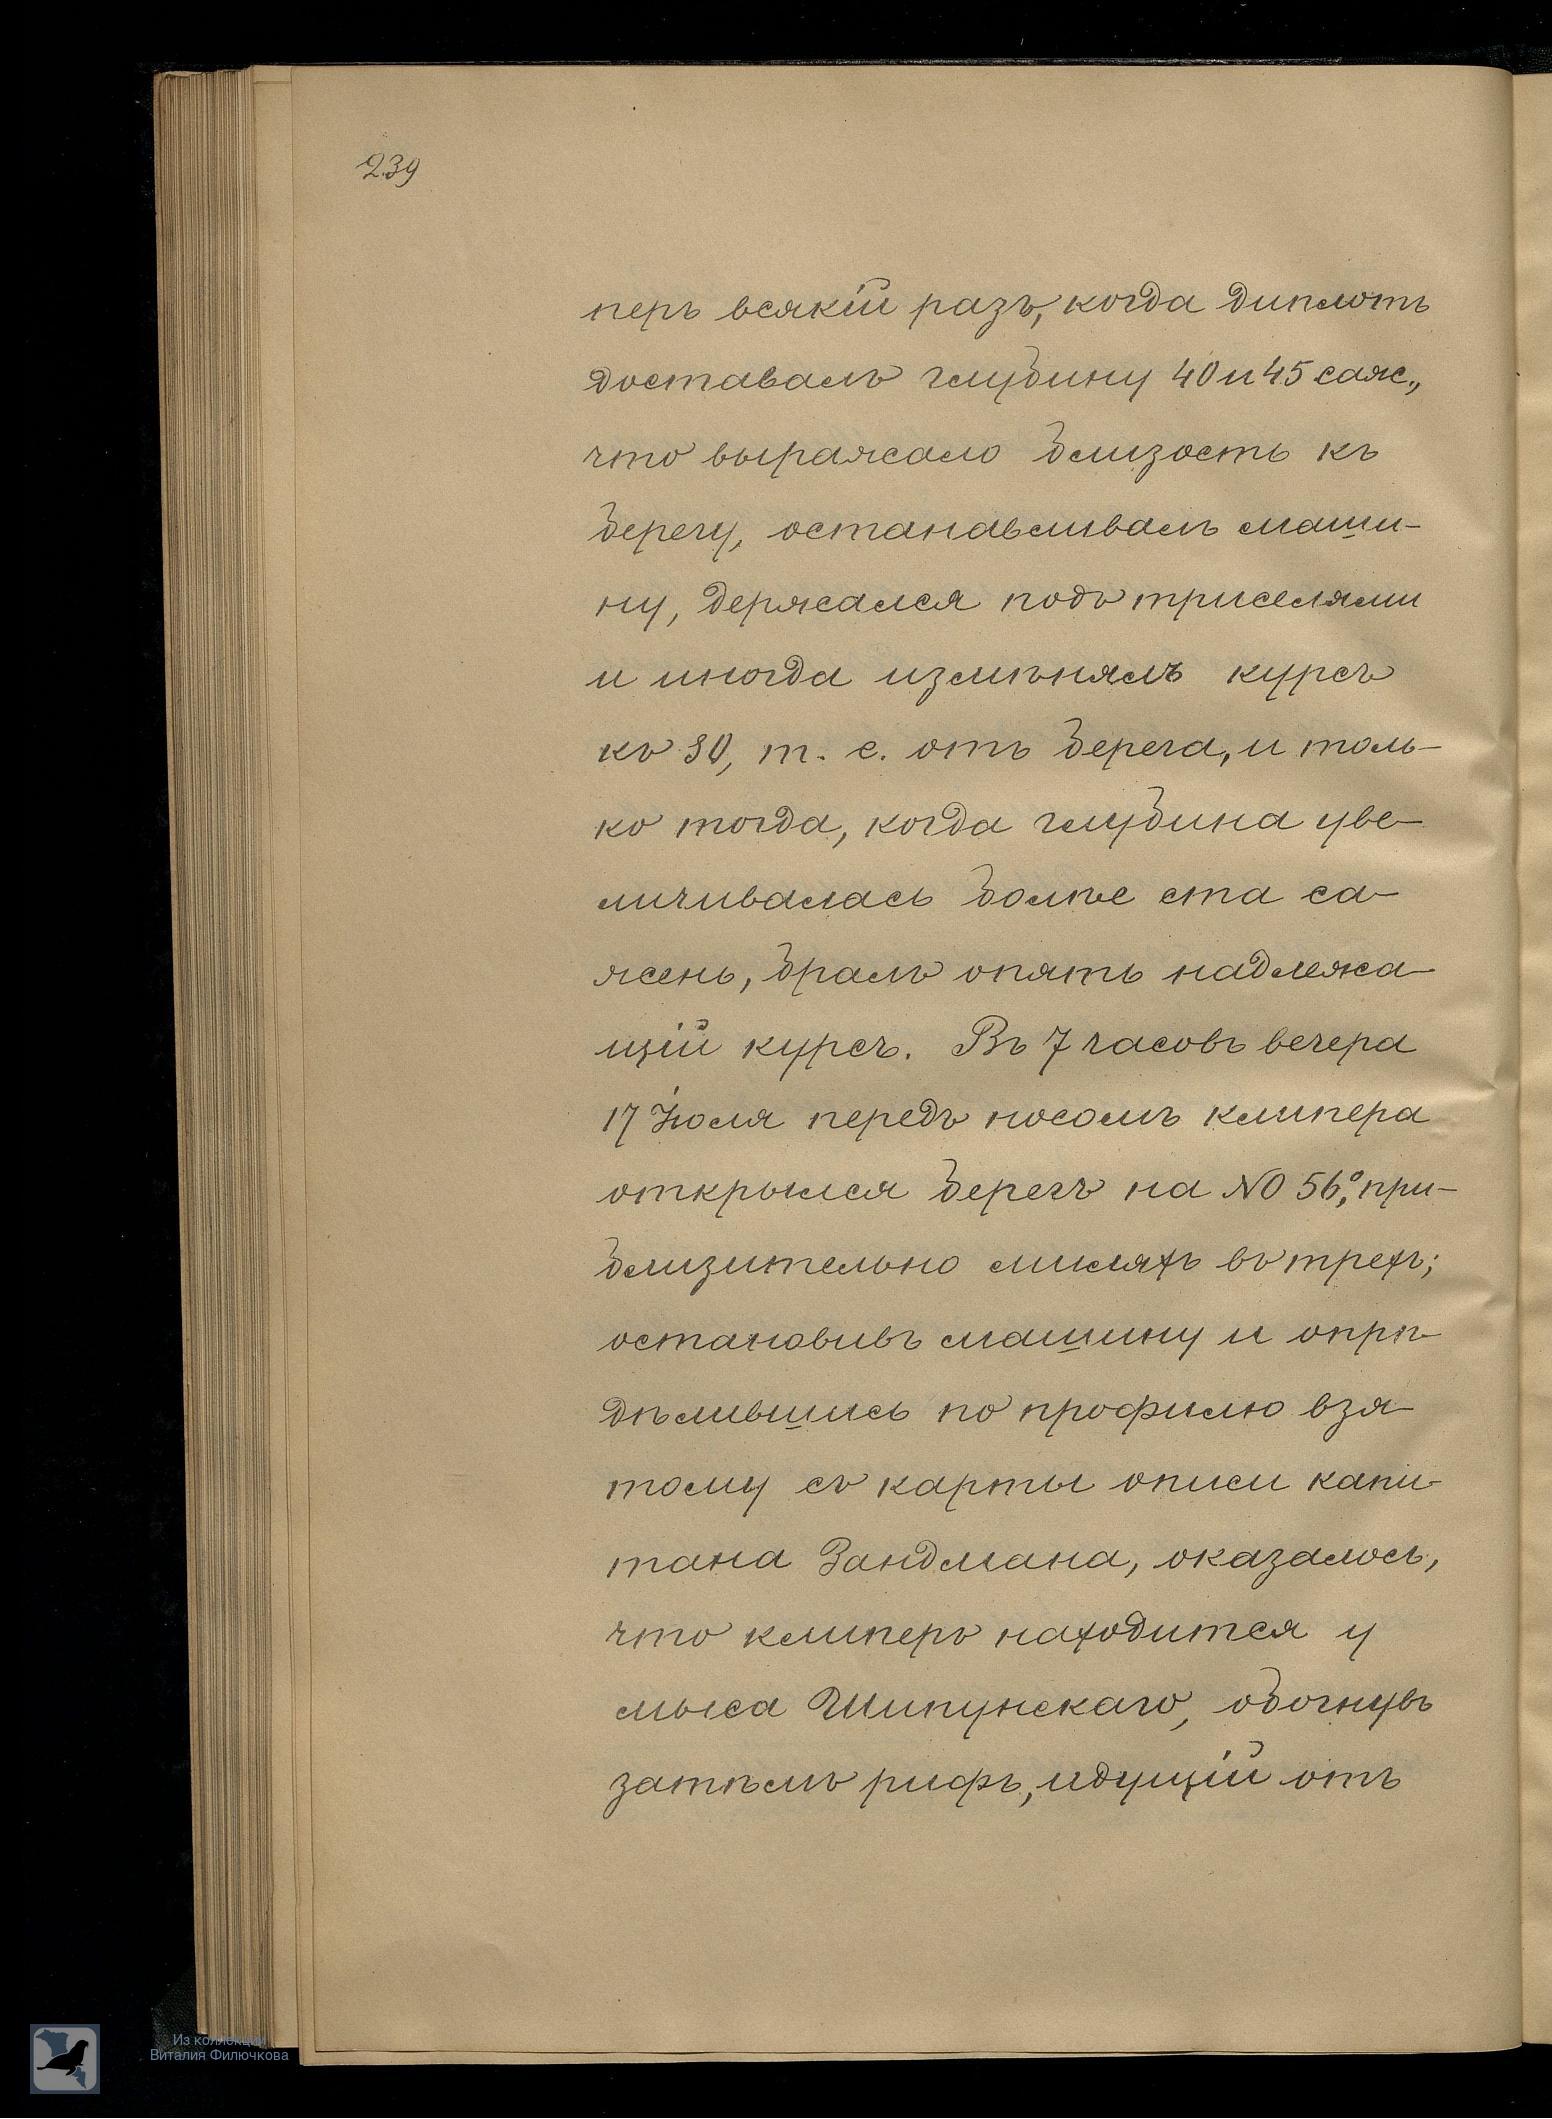 239
перъ всякій разъ, когда диплотъ
доставалъ глубину 40 и 45 саж.,
что выражало близость къ
берегу, останавливалъ маши-
ну, держался подъ триселями
и иногда измѣнялъ курсъ
къ SO, т. е. отъ берега, и толь-
ко тогда, когда глубина уве-
личивалась болѣе ста са-
жень, бралъ опять надлежа-
щій курсъ. Въ 7 часовъ вечера
17 Іюля передъ носомъ клипера
открылся берегъ на NO 56°, при-
близительно миляхъ въ трехъ;
остановивъ машину и опрѣ-
дѣлившись по профилю взя-
тому съ карты описи капи-
тана Зандмана, оказалось,
что клиперъ находится у
мыса Шипунскаго, обогнувъ
затѣмъ рифъ, идущій отъ
Из коллекции
Виталия Филючкова